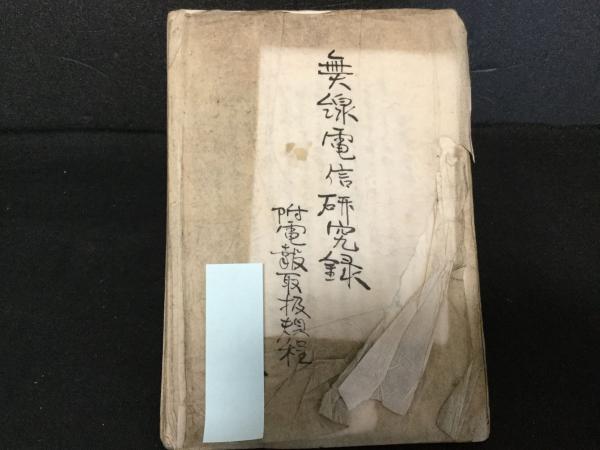 無線電信研究録
附電報取扱規程